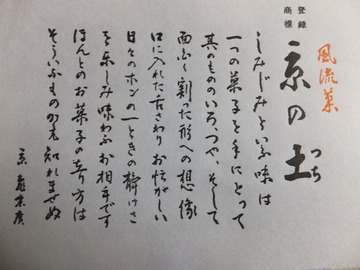 登録
商標
風流菓
京の土
つち
しみじみといふ味は
一つの菓子を手にとって
其のもののいろ、つや、そして
面白く割った形への想像
口に入れた舌さわり お忙がしい
日々のホンの一ときの静けさ
を楽しみ味わふお相手です
ほんとのお菓子の在り方は
そういふものかも知れませぬ